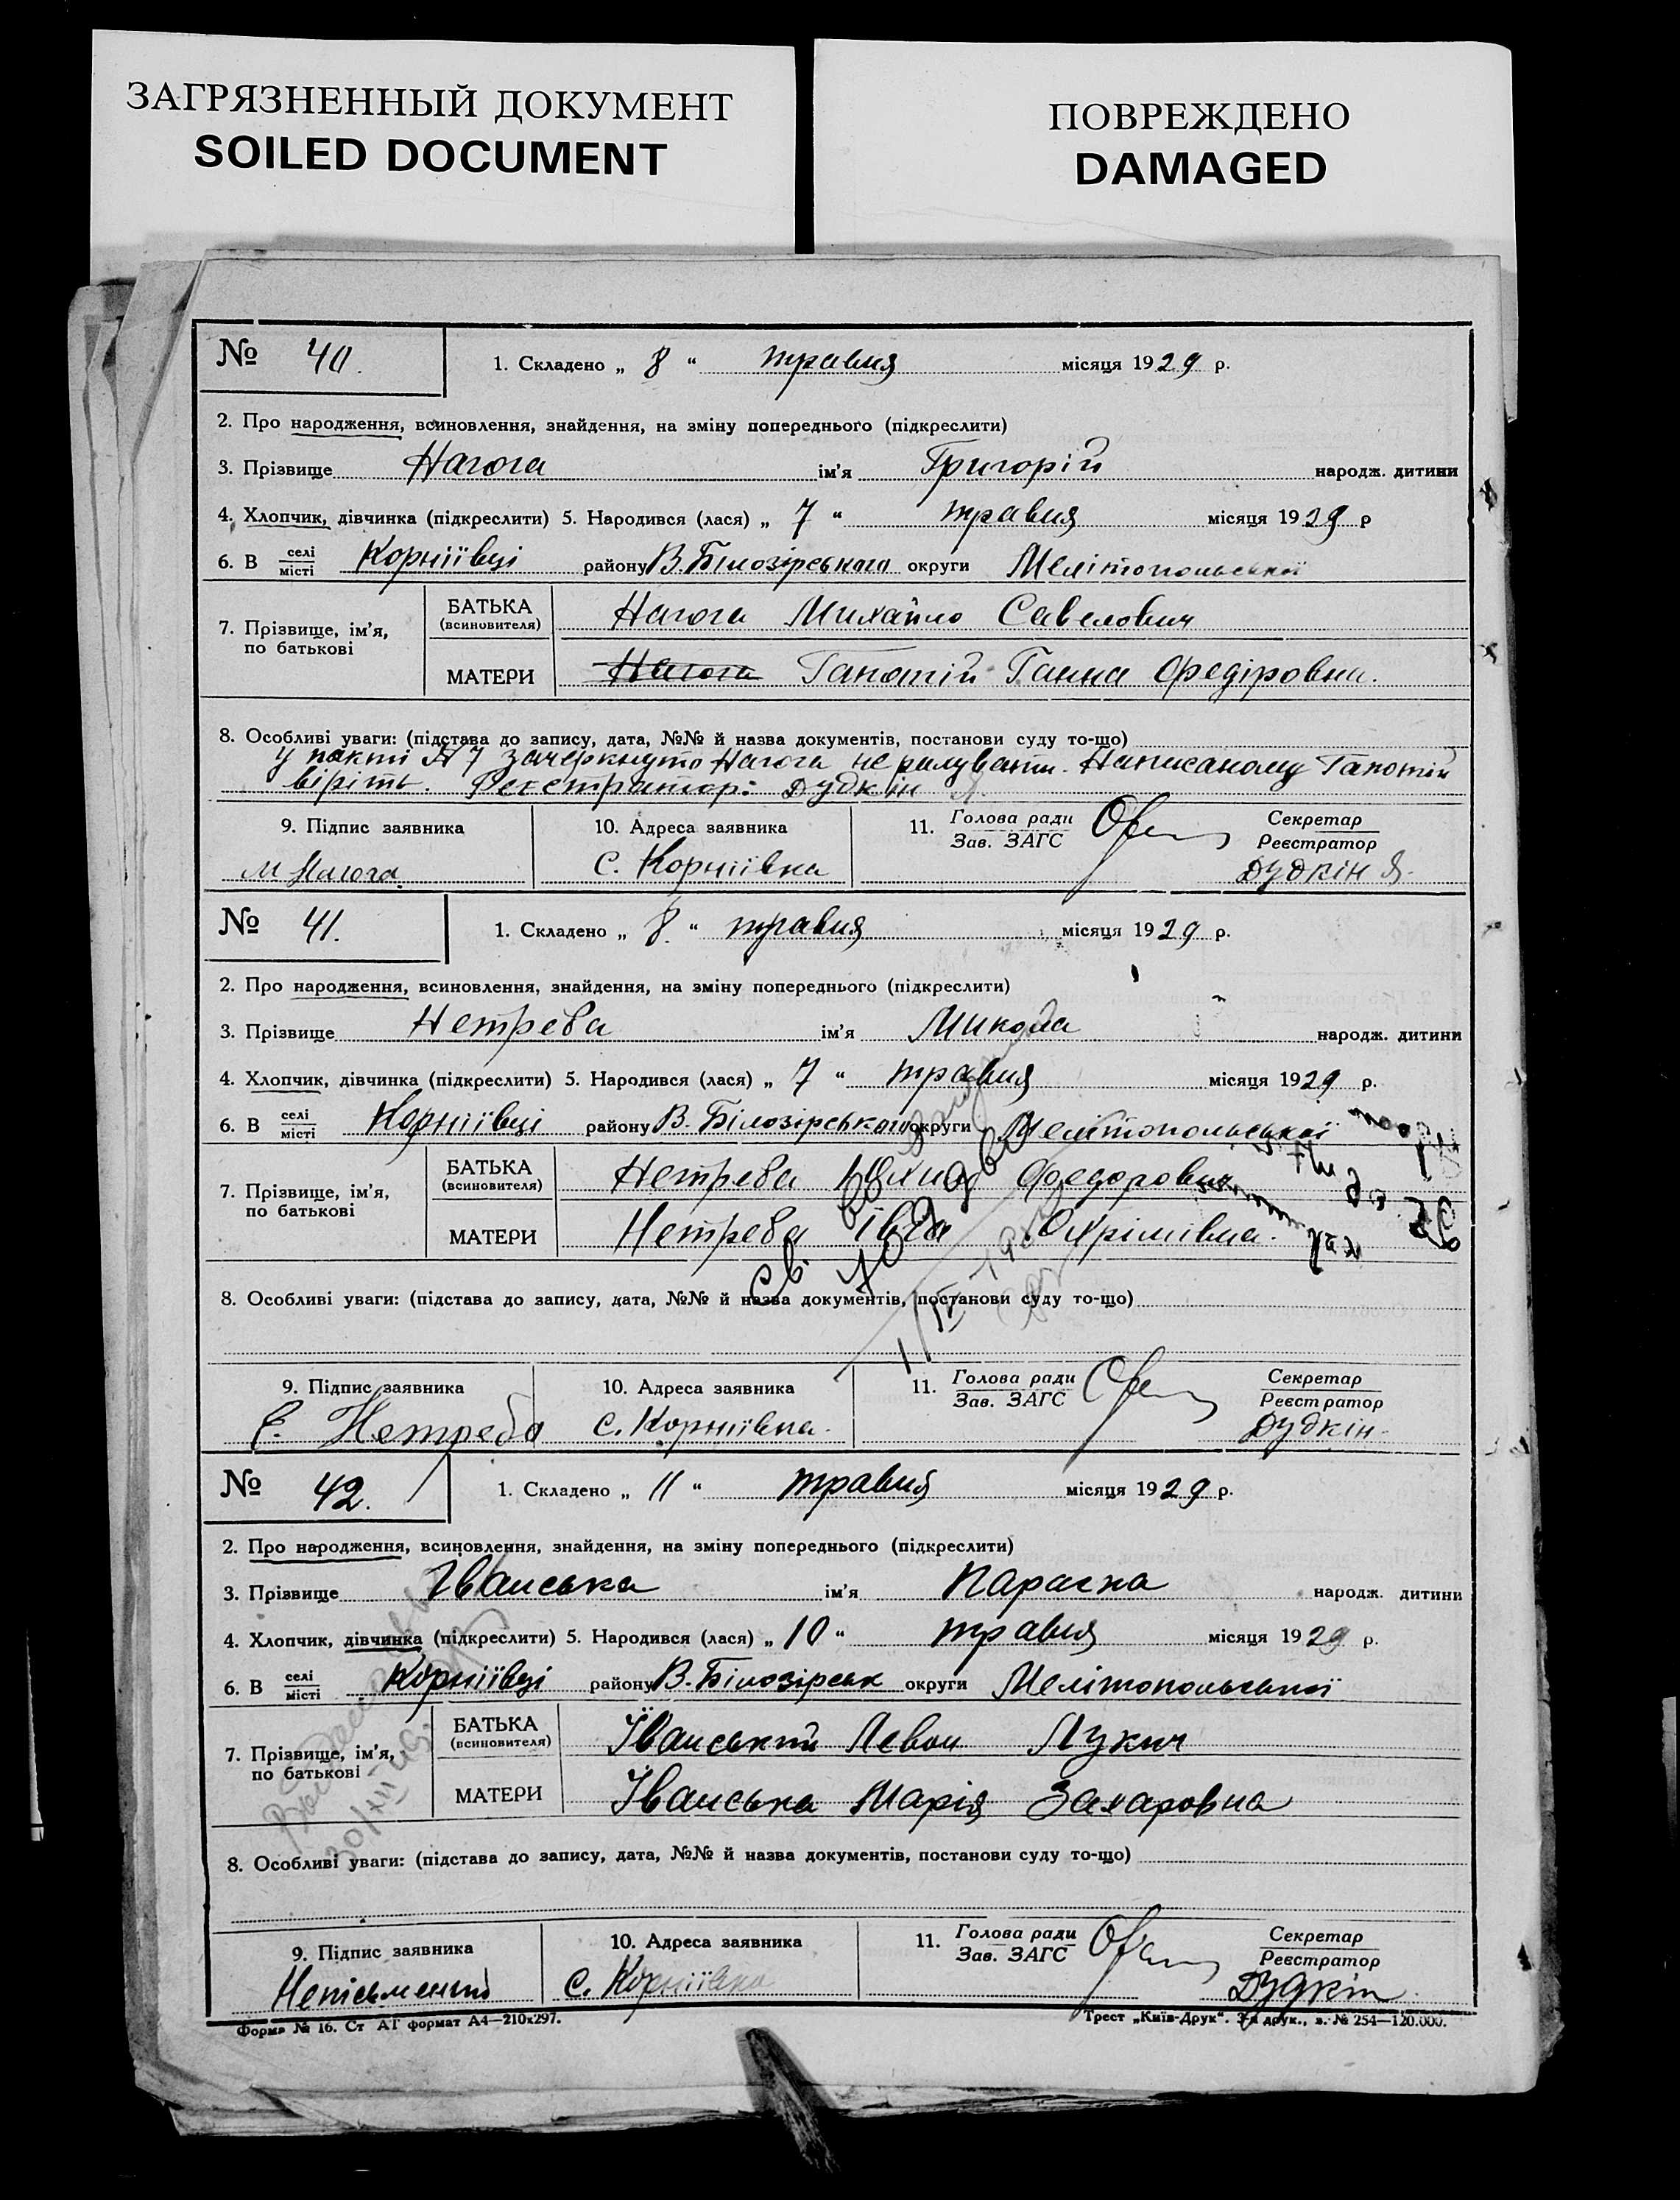 ЗАГРЯЗНЕННЫЙ ДОКУМЕНТ
SOILED DOCUMENT
ПОВРЕЖДЕНО
DAMAGED
№ 40. 1. Складено „ 8 “ травня місяця 1929 р.
2. Про народження, всиновлення, знайдення, на зміну попереднього (підкреслити)
3. Прізвище Нагога ім'я Григорій народж. дитини
4. Хлопчик, дівчинка (підкреслити) 5. Народився (лася) „ 7 “ травня місяця 1929 р
6. В селі місті Корніївці району В. Білозірського округи Мелітопольської
7. Прізвище, ім'я, по батькові
БАТЬКА (всиновителя) Нагога Михайло Савелович
МАТЕРИ Нагога Гапотій Ганна Федіровна.
8. Особливі уваги: (підстава до запису, дата, №№ й назва документів, постанови суду то-що)
у пакті № 7 зачеркнуто Нагога не рахувати. Написаному Гапотій
віріть. Реєстратор: Дудкін Я.
9. Підпис заявника 10. Адреса заявника 11. Голова ради Зав. ЗАГС Секретар Реєстратор
М Нагога. С. Корніївка Дудкін Я.
№ 41. 1. Складено „ 8 “ травня місяця 1929 р.
2. Про народження, всиновлення, знайдення, на зміну попереднього (підкреслити)
3. Прізвище Нетреба ім'я Микола народж. дитини
4. Хлопчик, дівчинка (підкреслити) 5. Народився (лася) „ 7 “ травня місяця 1929 р.
6. В селі місті Корніївці району В. Білозірського округи Мелітопольської
7. Прізвище, ім'я, по батькові
БАТЬКА (всиновителя) Нетреба Федорович
МАТЕРИ Нетреба Охрімівна.
8. Особливі уваги: (підстава до запису, дата, №№ й назва документів, постанови суду то-що)
9. Підпис заявника 10. Адреса заявника 11. Голова ради Зав. ЗАГС Секретар Реєстратор
Є. Нетреба С. Корніївка. Дудкін
№ 42. 1. Складено „ 11 “ травня місяця 1929 р.
2. Про народження, всиновлення, знайдення, на зміну попереднього (підкреслити)
3. Прізвище Іванська ім'я Параска народж. дитини
4. Хлопчик, дівчинка (підкреслити) 5. Народився (лася) „ 10 “ травня місяця 1929 р.
6. В селі місті Корніївці району В. Білозірськ округи Мелітопольської
7. Прізвище, ім'я, по батькові
БАТЬКА (всиновителя) Їванський Левон Лукич
МАТЕРИ Їванська Марія Захаровна
8. Особливі уваги: (підстава до запису, дата, №№ й назва документів, постанови суду то-що)
9. Підпис заявника 10. Адреса заявника 11. Голова ради Зав. ЗАГС Секретар Реєстратор
Неписьменний С. Корніївка Дудкін
Форма № 16. Ст АТ формат А4—210x297. Трест „Київ-Друк“. 3-я друк., з. № 254—120.000.